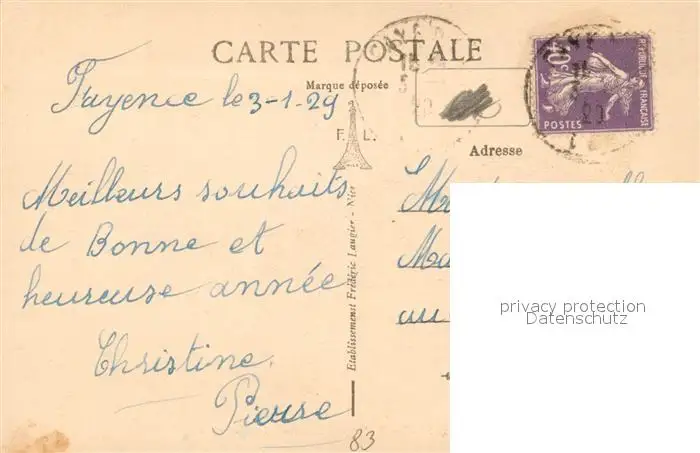 CARTE POSTALE
Marque déposée
F. L.
Adresse
40c
REPUBLIQUE FRANÇAISE
POSTES
Fayence le 3-1-29
Meilleurs souhaits
de Bonne et
heureuse année
Christine
Pierre
Etablissement Frédéric Laugier - Nice
au
83
privacy protection
Datenschutz